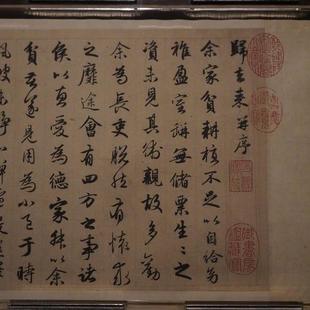 歸去來并序
余家貧耕植不足以自給幼
稚盈室缾無儲粟生生之
資未見其術親故多勸
余為長吏脫然有懷求
之靡途會有四方之事諸
侯以惠愛為德家叔以余
貧苦遂見用為小邑于時
風波未靜心憚遠役